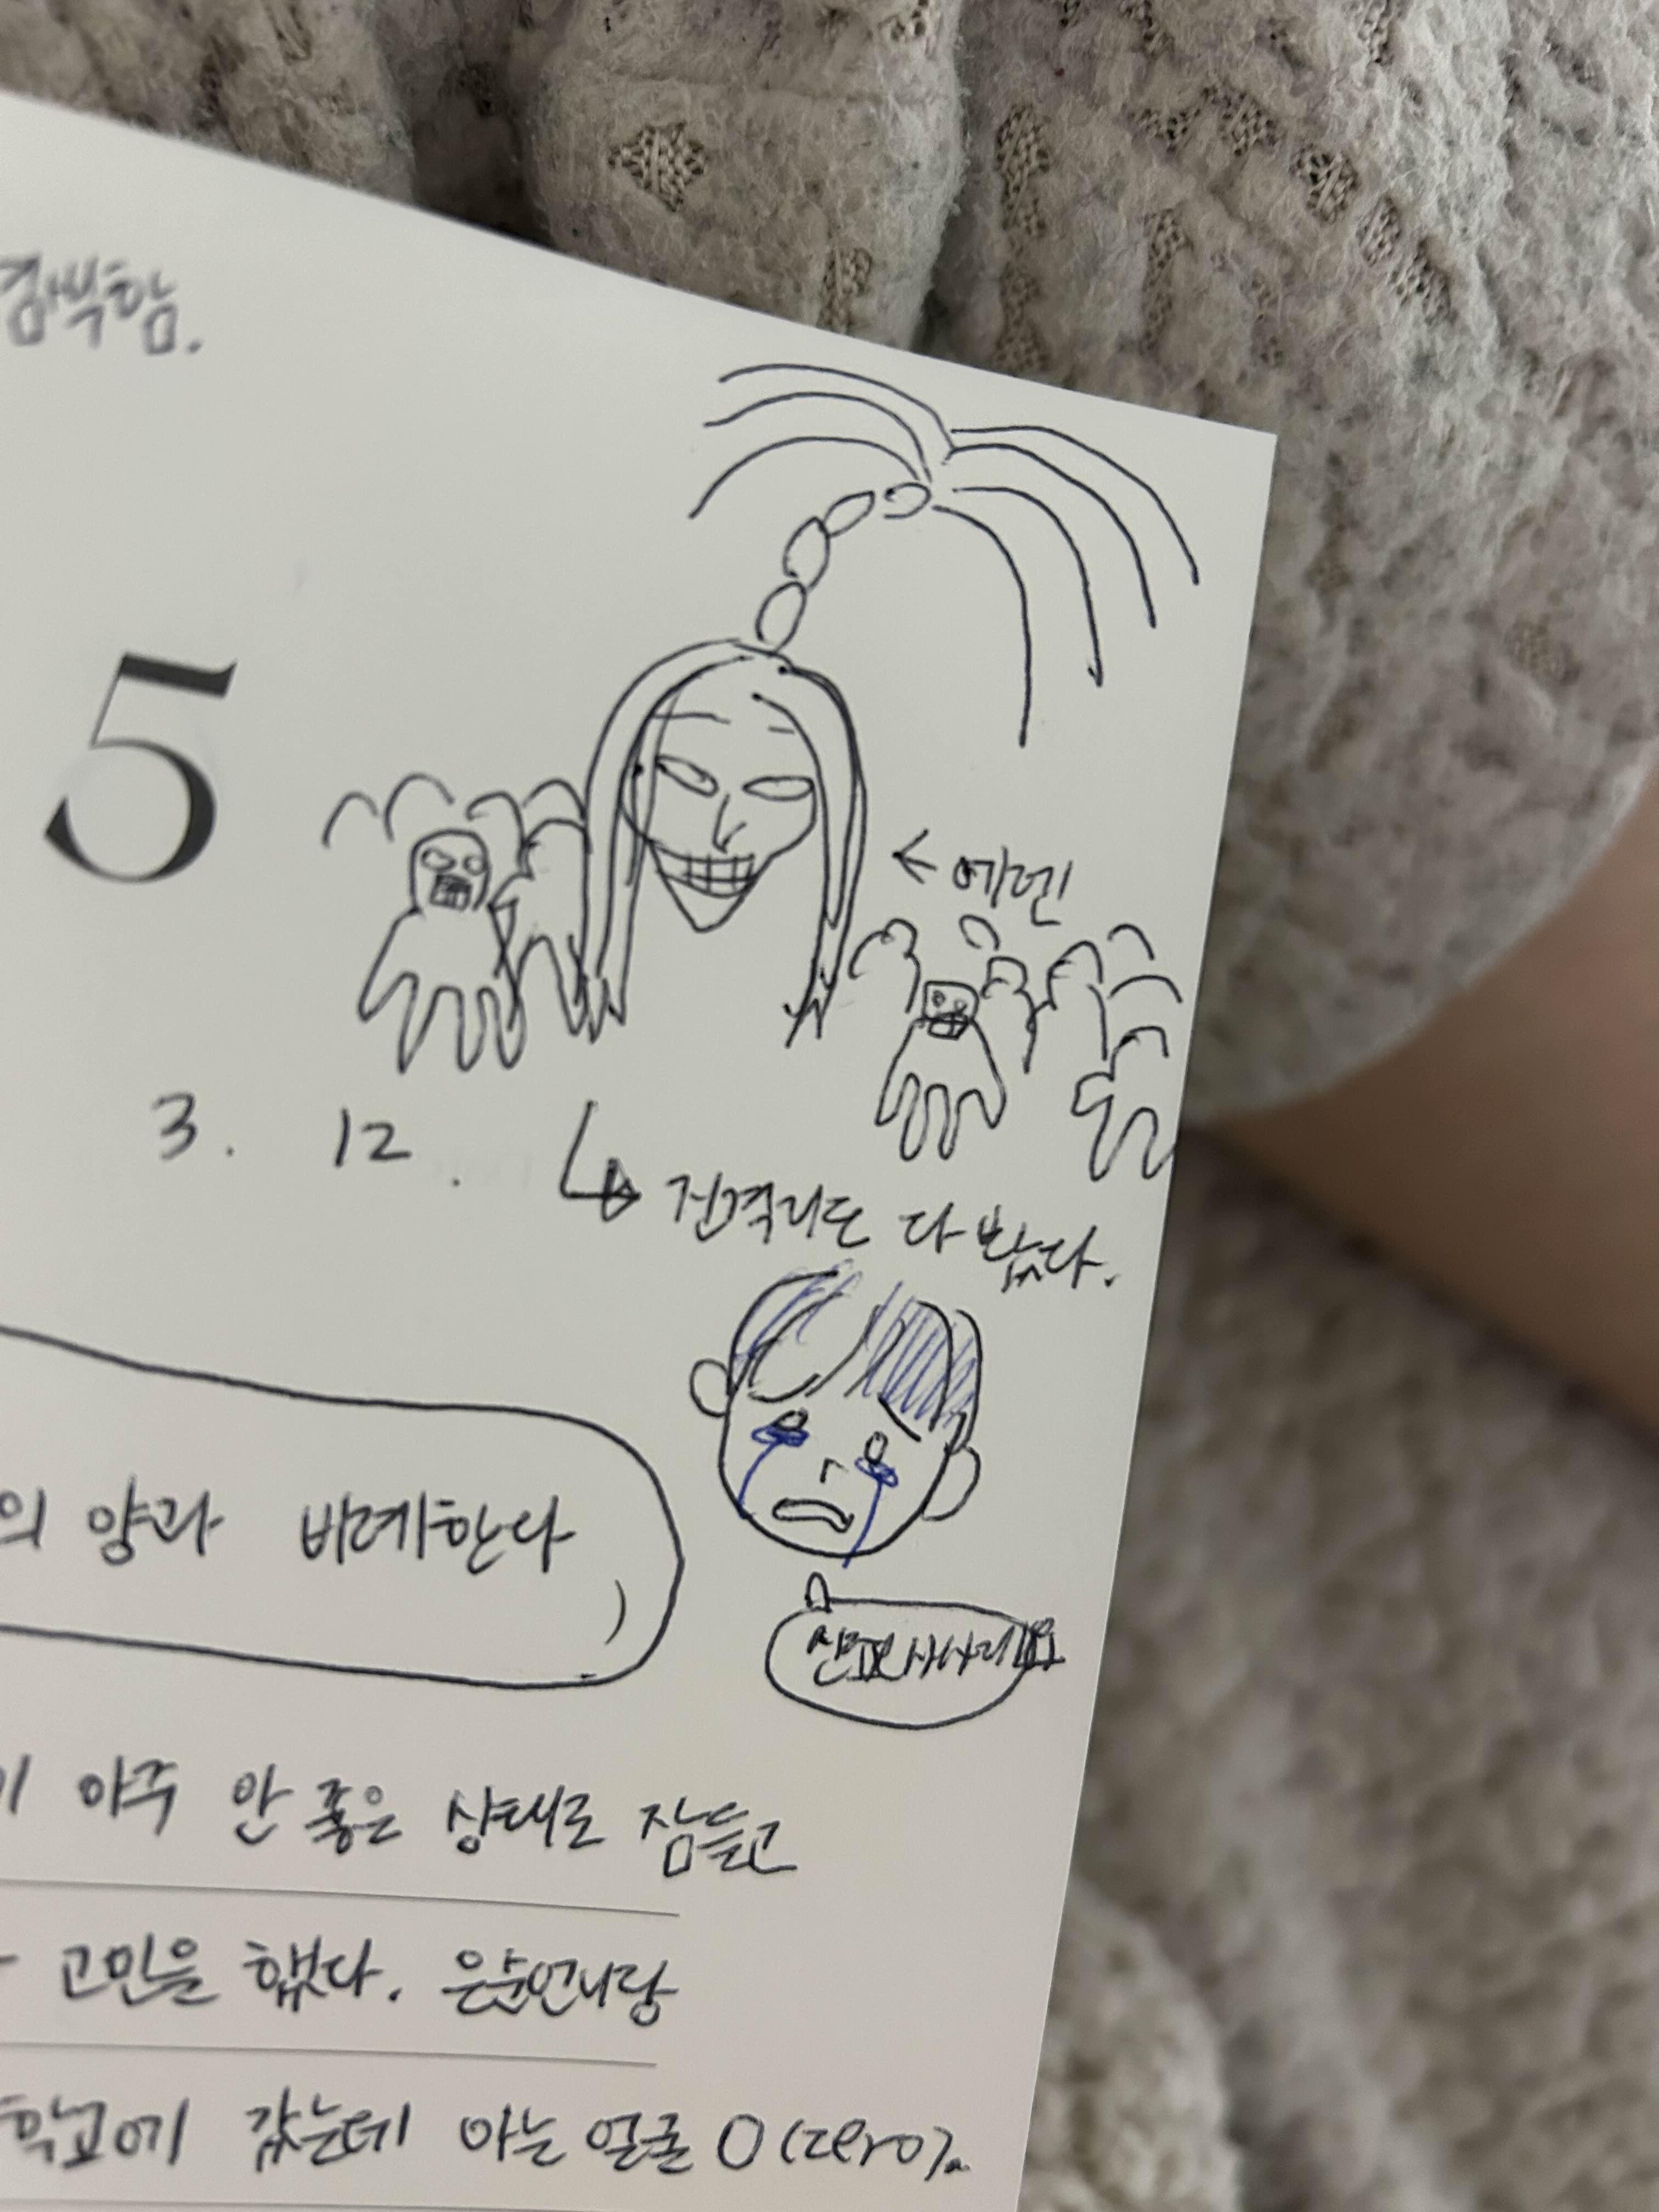 컴박함.
5
← 에렌
3. 12.
진격거도 다 봤다.
의 양과 비례한다
)
기 아주 안 좋은 상태로 잠들고
고민을 했다. 은순언니랑
학교에 갔는데 아는 얼굴 0 (zero)